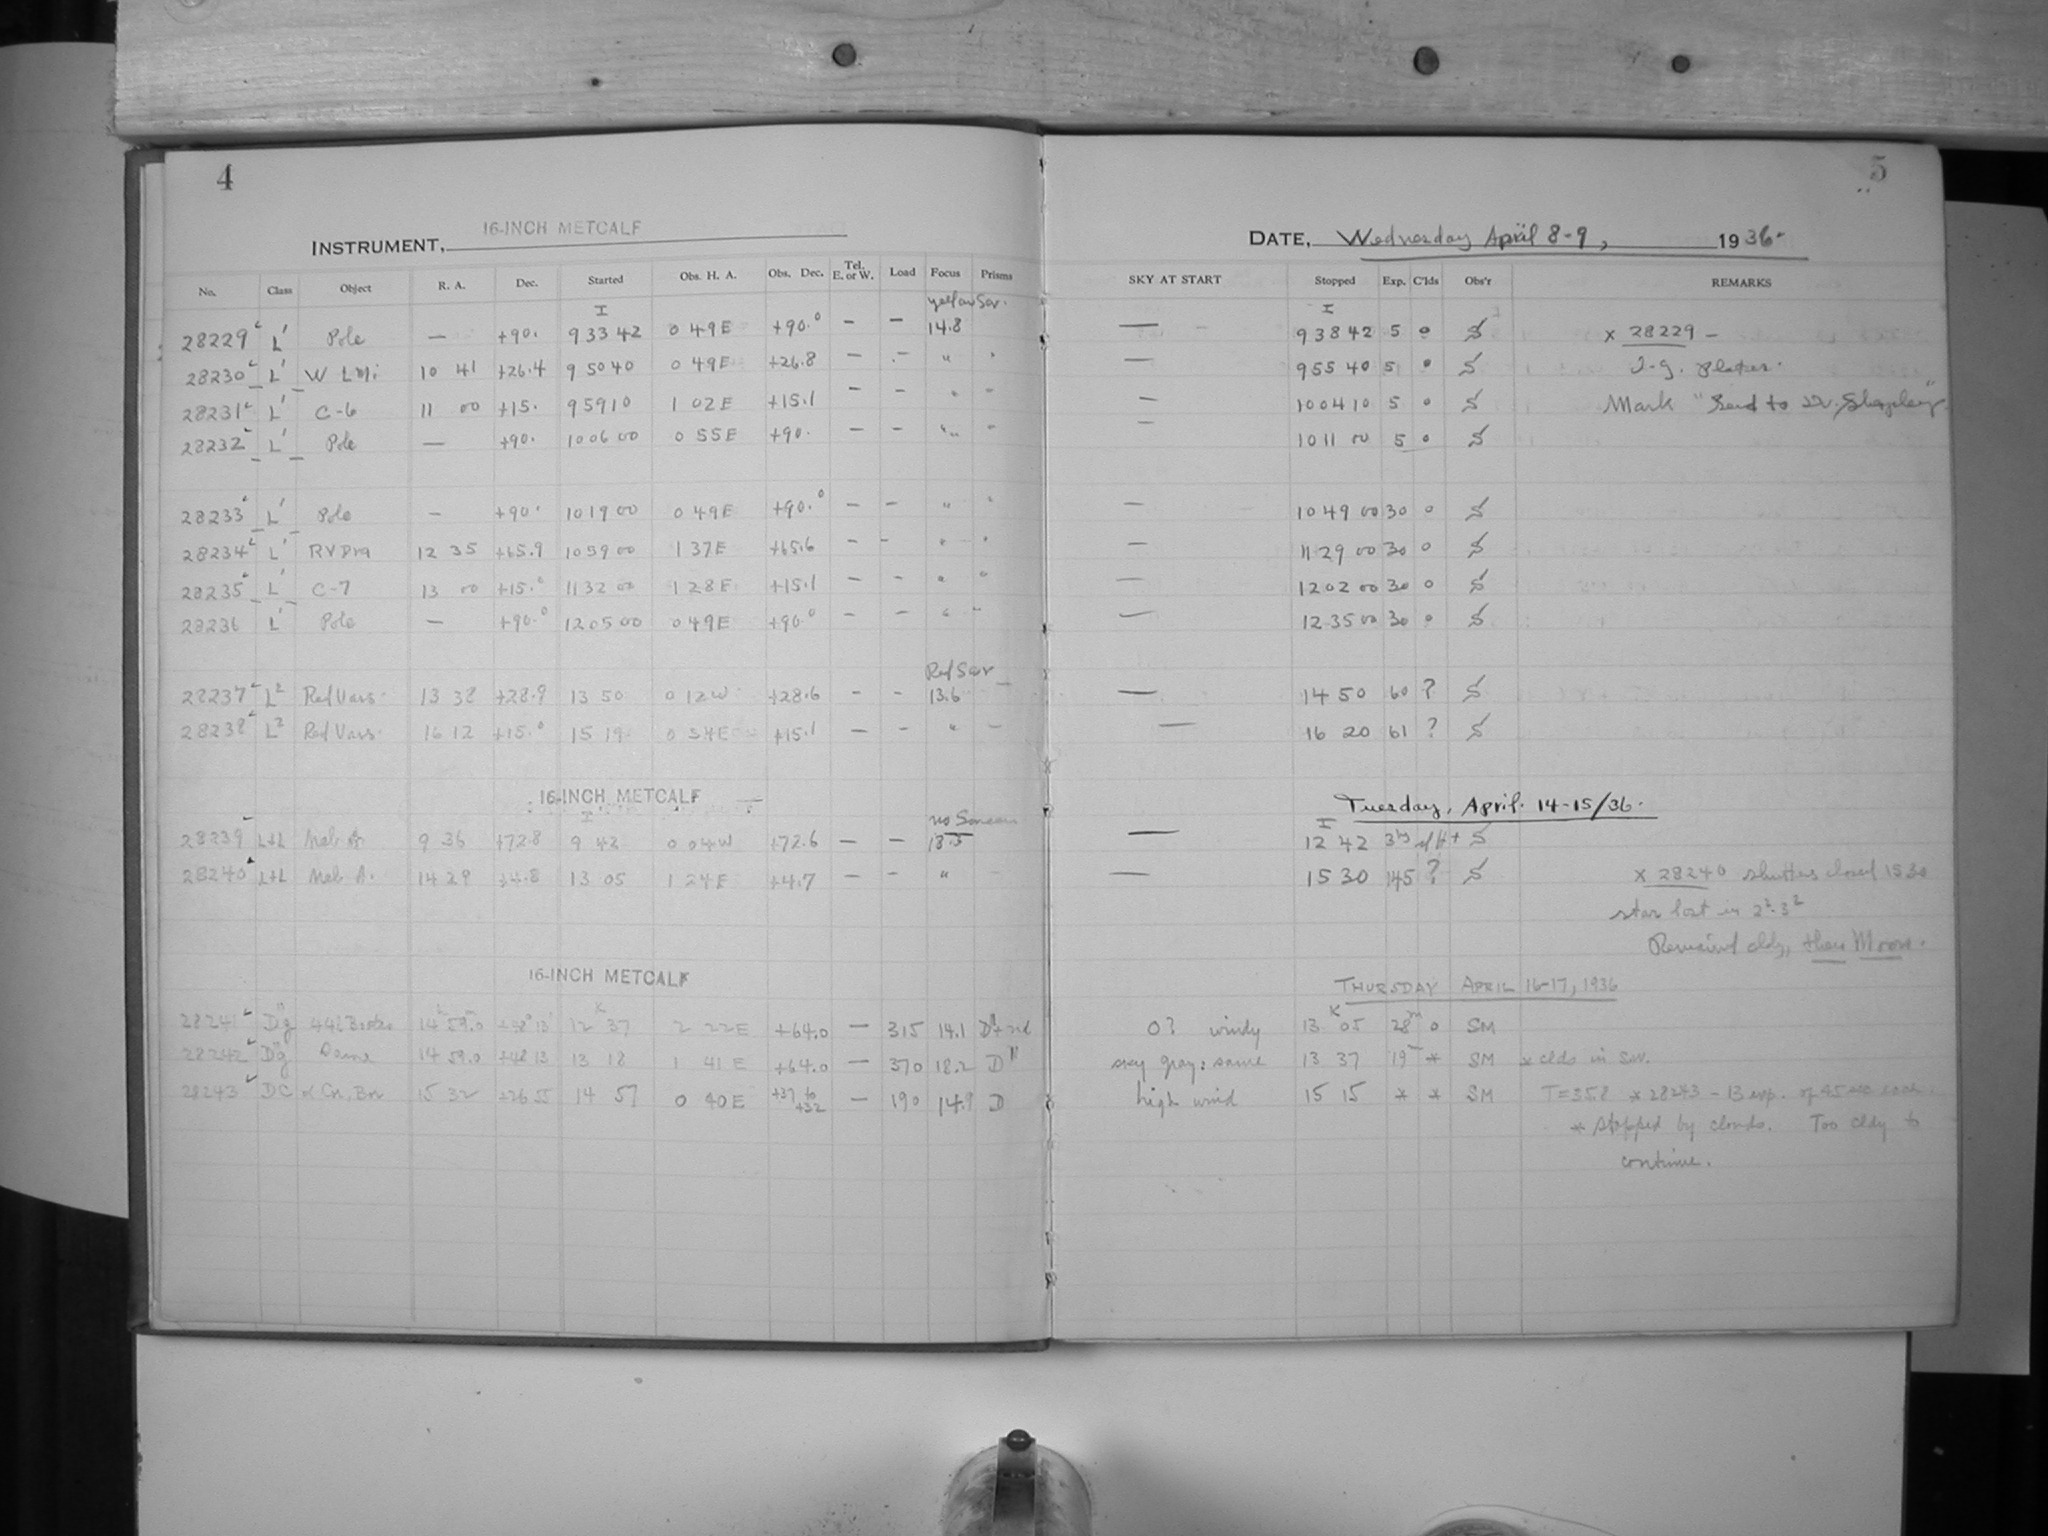 4
5
INSTRUMENT, 16-INCH METCALF
DATE, Wednesday April 8-9, 1936.
No. Class Object R. A. Dec. Started Obs. H. A. Obs. Dec. Tel. E. or W. Load Focus Prisms SKY AT START Stopped Exp. C'lds Obs'r REMARKS
I yellow Scr. I
28229 L' Pole — +90. 9 33 42 0 49E +90.° — — 14.8 — 9 38 42 5 0 S x 28229 —
28230 L' W LMi 10 41 +26.4 9 50 40 0 49E +26.8 — — " " — 9 55 40 5 0 S plates.
28231 L' C-6 11 00 +15. 9 59 10 1 02E +15.1 — — " " — 10 04 10 5 0 S Mark "Send to Dr. Shapley"
28232 L' Pole — +90. 10 06 00 0 55E +90. — — " " — 10 11 00 5 0 S
28233 L' Pole — +90. 10 19 00 0 49E +90.° — — " " — 10 49 00 30 0 S
28234 L' RVDra 12 35 +65.9 10 59 00 1 37E +65.6 — — " " — 11 29 00 30 0 S
28235 L' C-7 13 00 +15.° 11 32 00 1 28E +15.1 — — " " — 12 02 00 30 0 S
28236 L' Pole — +90.° 12 05 00 0 49E +90.° — — " " — 12 35 00 30 0 S
Red Scr
28237 L² Red Vars. 13 38 +28.9 13 50 0 12W +28.6 — — 13.6 — — 14 50 60 ? S
28238 L² Red Vars. 16 12 +15.° 15 19 0 54E +15.1 — — " — — 16 20 61 ? S
16-INCH METCALF
Tuesday, April. 14-15/36.
I no Screen I
28239 L+L Neb. A 9 36 +72.8 9 42 0 04W +72.6 — — 18.5 — 12 42 S
28240 L+L Neb. A. 14 29 +4.8 13 05 1 24E +4.7 — — " — — 15 30 145 ? S x 28240 shutter closed 1530
star lost in
Remained cldy, then Moon.
16-INCH METCALF
THURSDAY APRIL 16-17, 1936
28241 Dg 44i Bootis 14 59.0 +48 13 12 37 2 22E +64.0 — 315 14.1 0? windy 13 05 28m 0 SM
28242 Dg Same 14 59.0 +48 13 13 18 1 41 E +64.0 — 370 18.2 D" sky gray: same 13 37 19 * SM * clds in Scr.
28243 DC α Cr. Br 15 32 +26 55 14 57 0 40E +37 to +32 — 190 14.9 D high wind 15 15 * * SM T=358 * 28243 - 13 exp. of 45 sec each.
* stopped by clouds. Too cldy to
continue.